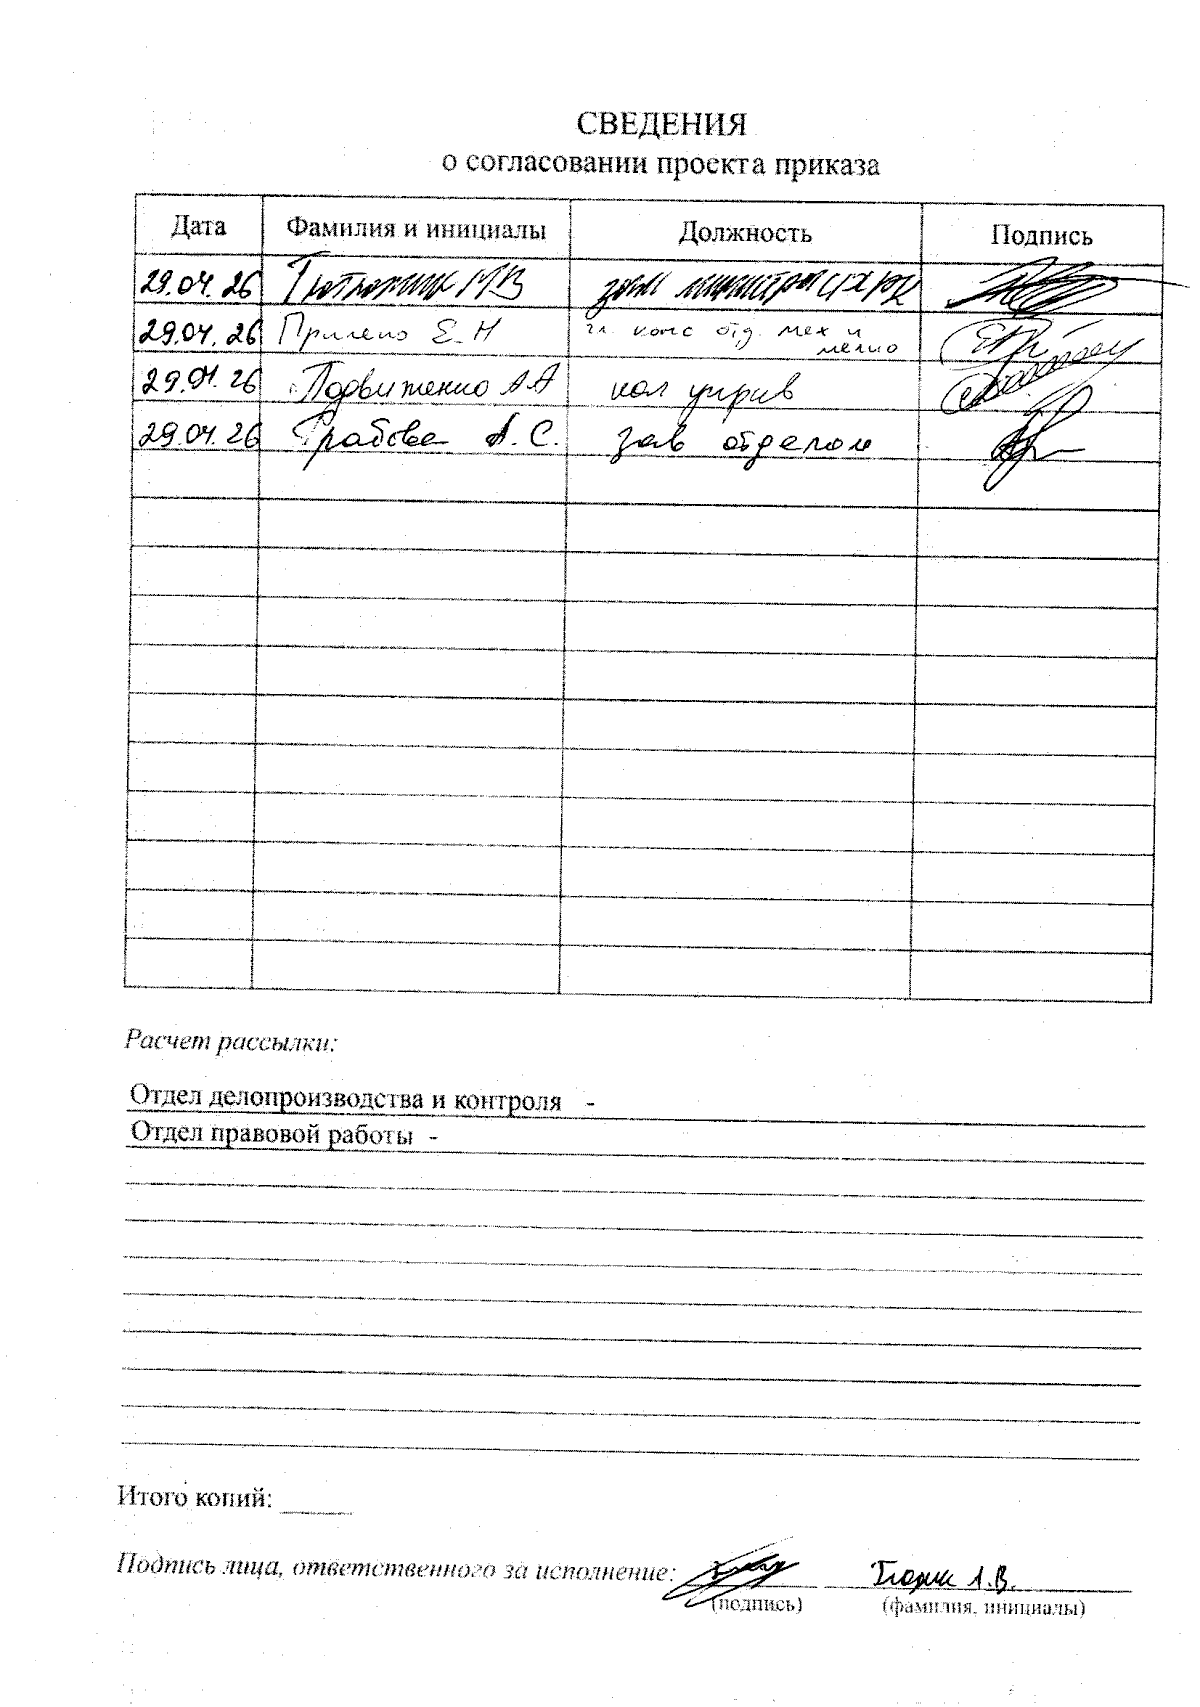 СВЕДЕНИЯ
о согласовании проекта приказа
Дата Фамилия и инициалы Должность Подпись
29.04.26 М В зам министра с/х РК
29.04.26 Прилепо Е.Н гл. конс отд. мех и
мелио
29.04.26 Подвиженко А А
29.04.26 Грабова А.С. зав отделом
Расчет рассылки:
Отдел делопроизводства и контроля -
Отдел правовой работы -
Итого копий:
Подпись лица, ответственного за исполнение: А.В.
(подпись) (фамилия, инициалы)